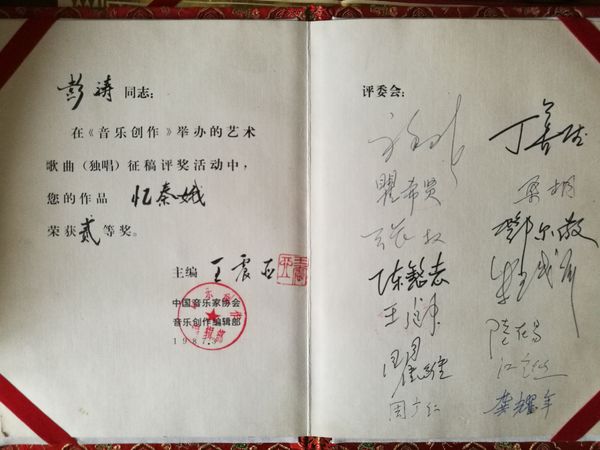 彭涛 同志:
在《音乐创作》举办的艺术
歌曲(独唱)征稿评奖活动中,
您的作品 忆秦娥
荣获贰等奖。
主编 王震亚
中国音乐家协会
音乐创作编辑部
1987.9
评委会:
丁善德
瞿希贤
桑桐
邓尔敬
陈铭志
陆在易
江定仙
周广仁
龚耀年